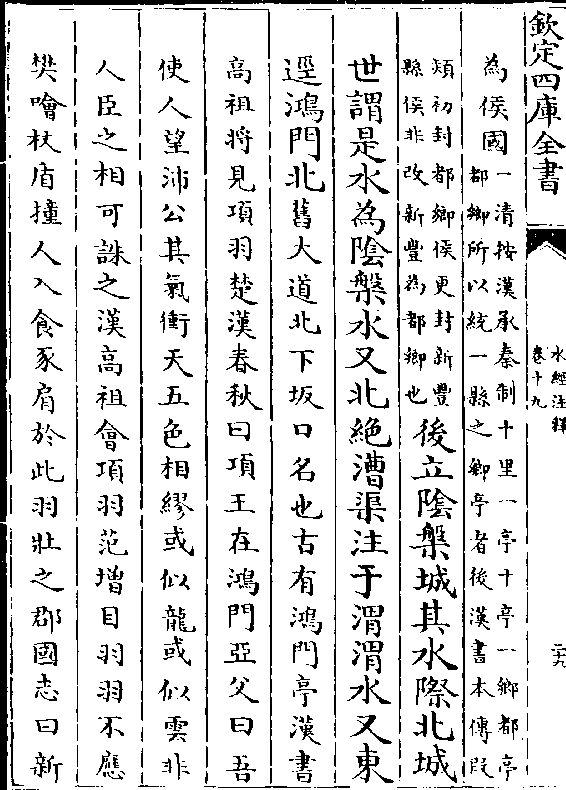 欽定四庫全書
水經注釋
卷十九
二十九
為侯國
一清按漢承秦制十里一亭十亭一鄉都亭
都鄉所以統一縣之鄉亭者後漢書本傳段
熲初封都鄉侯更封新豐
縣侯非改新豐為都鄉也
後立陰槃城其水際北城
世謂是水為陰槃水又北絶漕渠注于渭渭水又東
逕鴻門北舊大道北下坂口名也古有鴻門亭漢書
高祖將見項羽楚漢春秋曰項王在鴻門亞父曰吾
使人望沛公其氣衝天五色相繆或似龍或似雲非
人臣之相可誅之漢高祖會項羽范增目羽羽不應
樊噲杖盾撞人入食豕肩於此羽壯之郡國志曰新